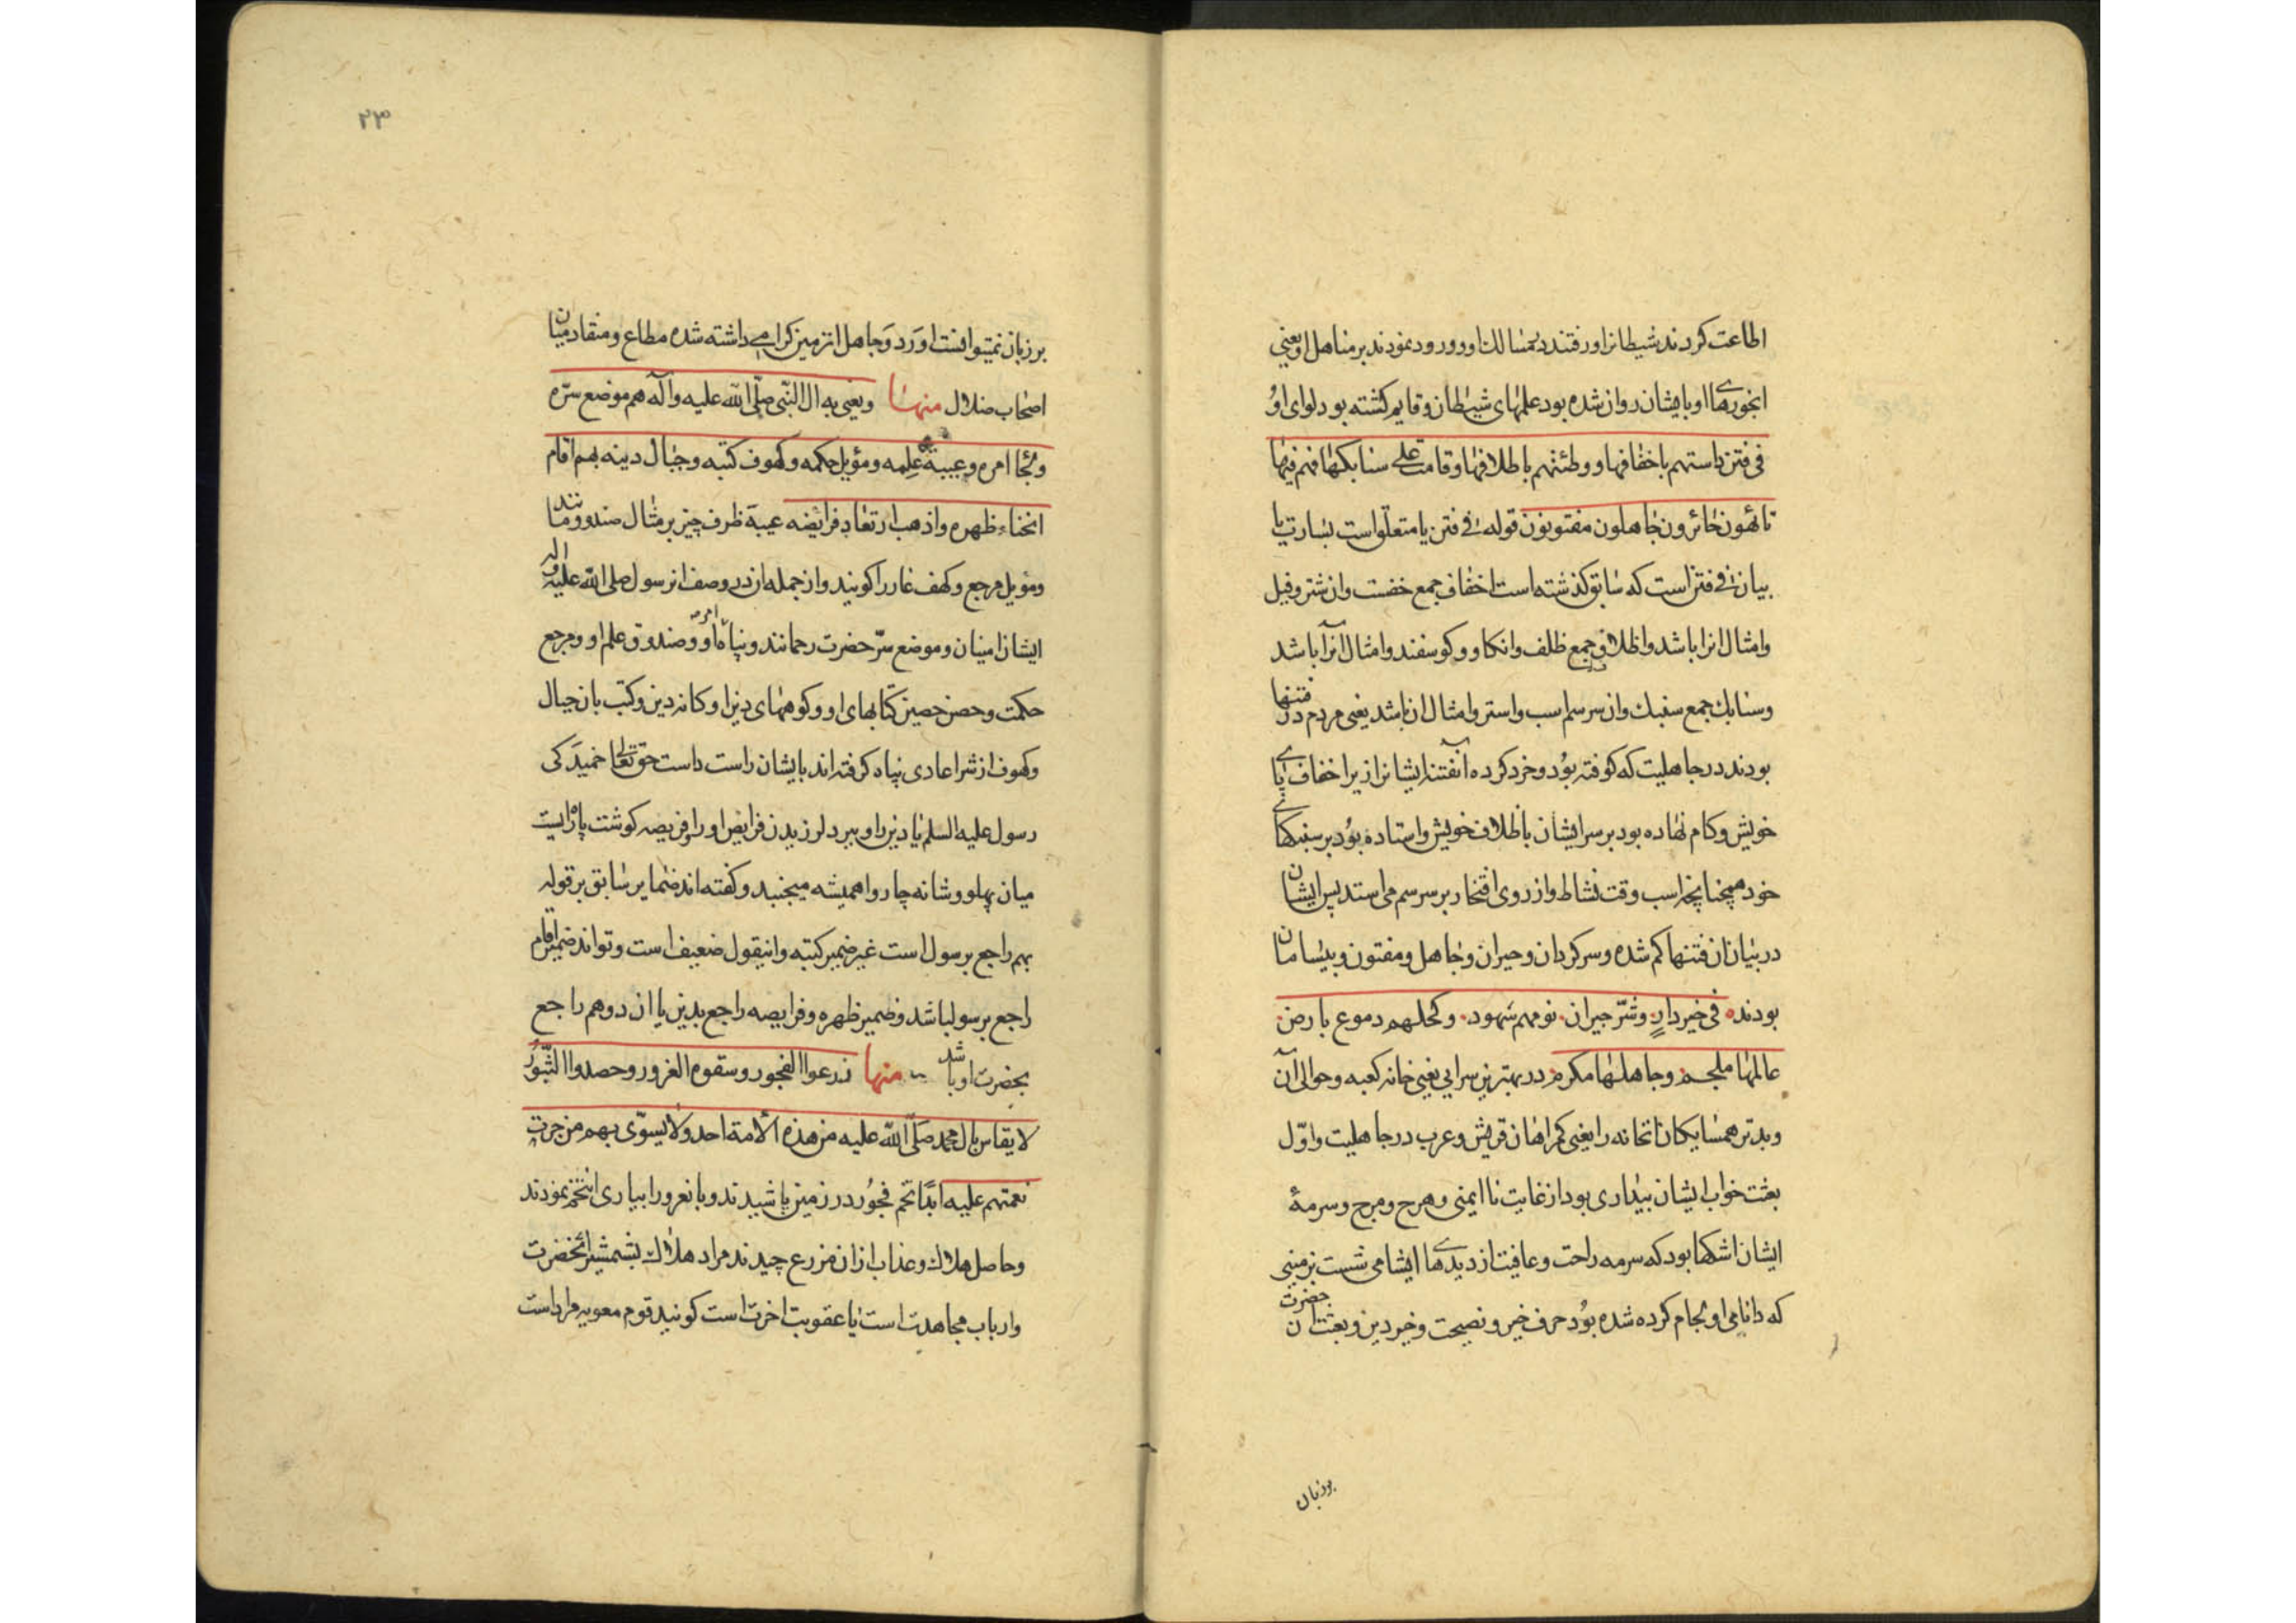 اطاعت کردند شیطانرا و رفتند بمسالک او و ورود نمودند بر مناهل او یعنی
ابخورهای او بایشان روان شده بود علمهای شیطان و قایم کشته بود لوای او
فی فتن داستهم باخفافها و وطئتهم باظلافها و قامت علی سنابکها فهم فیها
تائهون حائرون جاهلون مفتونون قوله فی فتن یا متعلق است بسارت یا
بیان فی فتن است که سابق کذشته است اخفاف جمع خفست وان شتر و فیل
وامثال انرا باشد واظلاف جمع ظلف وان کاو و کوسفند وامثال آنرا باشد
وسنابک جمع سنبک وان سر سم اسب واستر وامثال ان باشد یعنی مردم در فتنها
بودند در جاهلیت که کوفته بود وخرد کرده آنفتنه ایشانرا زیر اخفاف پای
خویش وکام نهاده بود بر سر ایشان باظلاف خویش واستاده بود بر سنبکهای
خود همچنانچه اسب وقت نشاط واز روی افتخار بر سر سم می استد پس ایشان
در میان ان فتنها کم شده وسرکردان وحیران وجاهل ومفتون وبیسامان
بودند فی خیر دار وشر جیران نومهم سهود وکحلهم دموع بارض
عالمها ملجم وجاهلها مکرم در بهترین سرایی یعنی خانه کعبه وحوالی آن
وبدتر همسایکان انخانه را یعنی کمراهان قریش وعرب در جاهلیت واول
بعثت خواب ایشان بیداری بود از غایت نا ایمنی وهرج ومرج وسرمهٔ
ایشان اشکها بود که سرمه راحت وعافیت از دیدهای ایشا می شست بزمینی
که دانای او لجام کرده شده بود حرف خیر ونصیحت وخیر دین وبعثت ان حضرت
بر زبان
۲۳
بر زبان نمیتوانست اورد وجاهل انزمین کرامی داشته شده مطاع ومنقاد میان
اصحاب ضلال منها ویعنی به ال النبی صلی الله علیه وآله هم موضع سره
ولجا امره وعیبة علمه ومؤیل حکمه وکهوف کتبه وجبال دینه بهم اقام
انحناء ظهره واذهب ارتعاد فرائضه عیبة ظرف چیز بر مثال صندوق مانند
ومؤیل مرجع وکهف غار را کویند واز جمله ان در وصف ال رسول صلی الله علیه واله
ایشان امینان وموضع سر حضرت رحمانند وپناه امر او وصندوق علم او ومرجع
حکمت وحصن حصین کتابهای او وکوههای دین او کانه دین وکتب بان جبال
وکهوف از شر اعادی پناه کرفته اند بایشان راست داست حق تعالی خمیدکی
رسول علیه السلم یا دین را وببرد لرزیدن فرایض او را وفریصه کوشت پارایست
میان پهلو وشانه چاروا همیشه میجنبد وکفته اند ضمایر سابق بر قوله
بهم راجع برسول است غیر ضمیر کتبه واینقول ضعیف است وتواند ضمیر اقام
راجع برسول باشد وضمیر ظهره وفرایصه راجع بدین یا ان دو هم راجع
بحضرت او باشد منها زرعوا الفجور وسقوه الغرور وحصدوا الثبور
لا یقاس بال محمد صلی الله علیه من هذه الأمة احد ولا یسوی بهم من جرت
نعمتهم علیه ابدا تخم فجور در زمین پاشیدند وبا نغرور ابیاری انتخم نمودند
وحاصل هلاک وعذاب از ان مزرع چیدند مراد هلاک بشمشیر انحضرت
وارباب مجاهدت است یا عقوبت اخرت است کویند قوم معویه مراد است